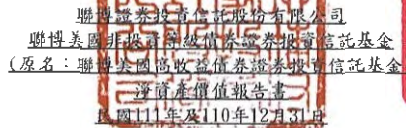 聯博證券投資信託股份有限公司
聯博美國非投資等級債券證券投資信託基金
(原名：聯博美國高收益債券證券投資信託基金
淨資產價值報告書
民國111年及110年12月31日